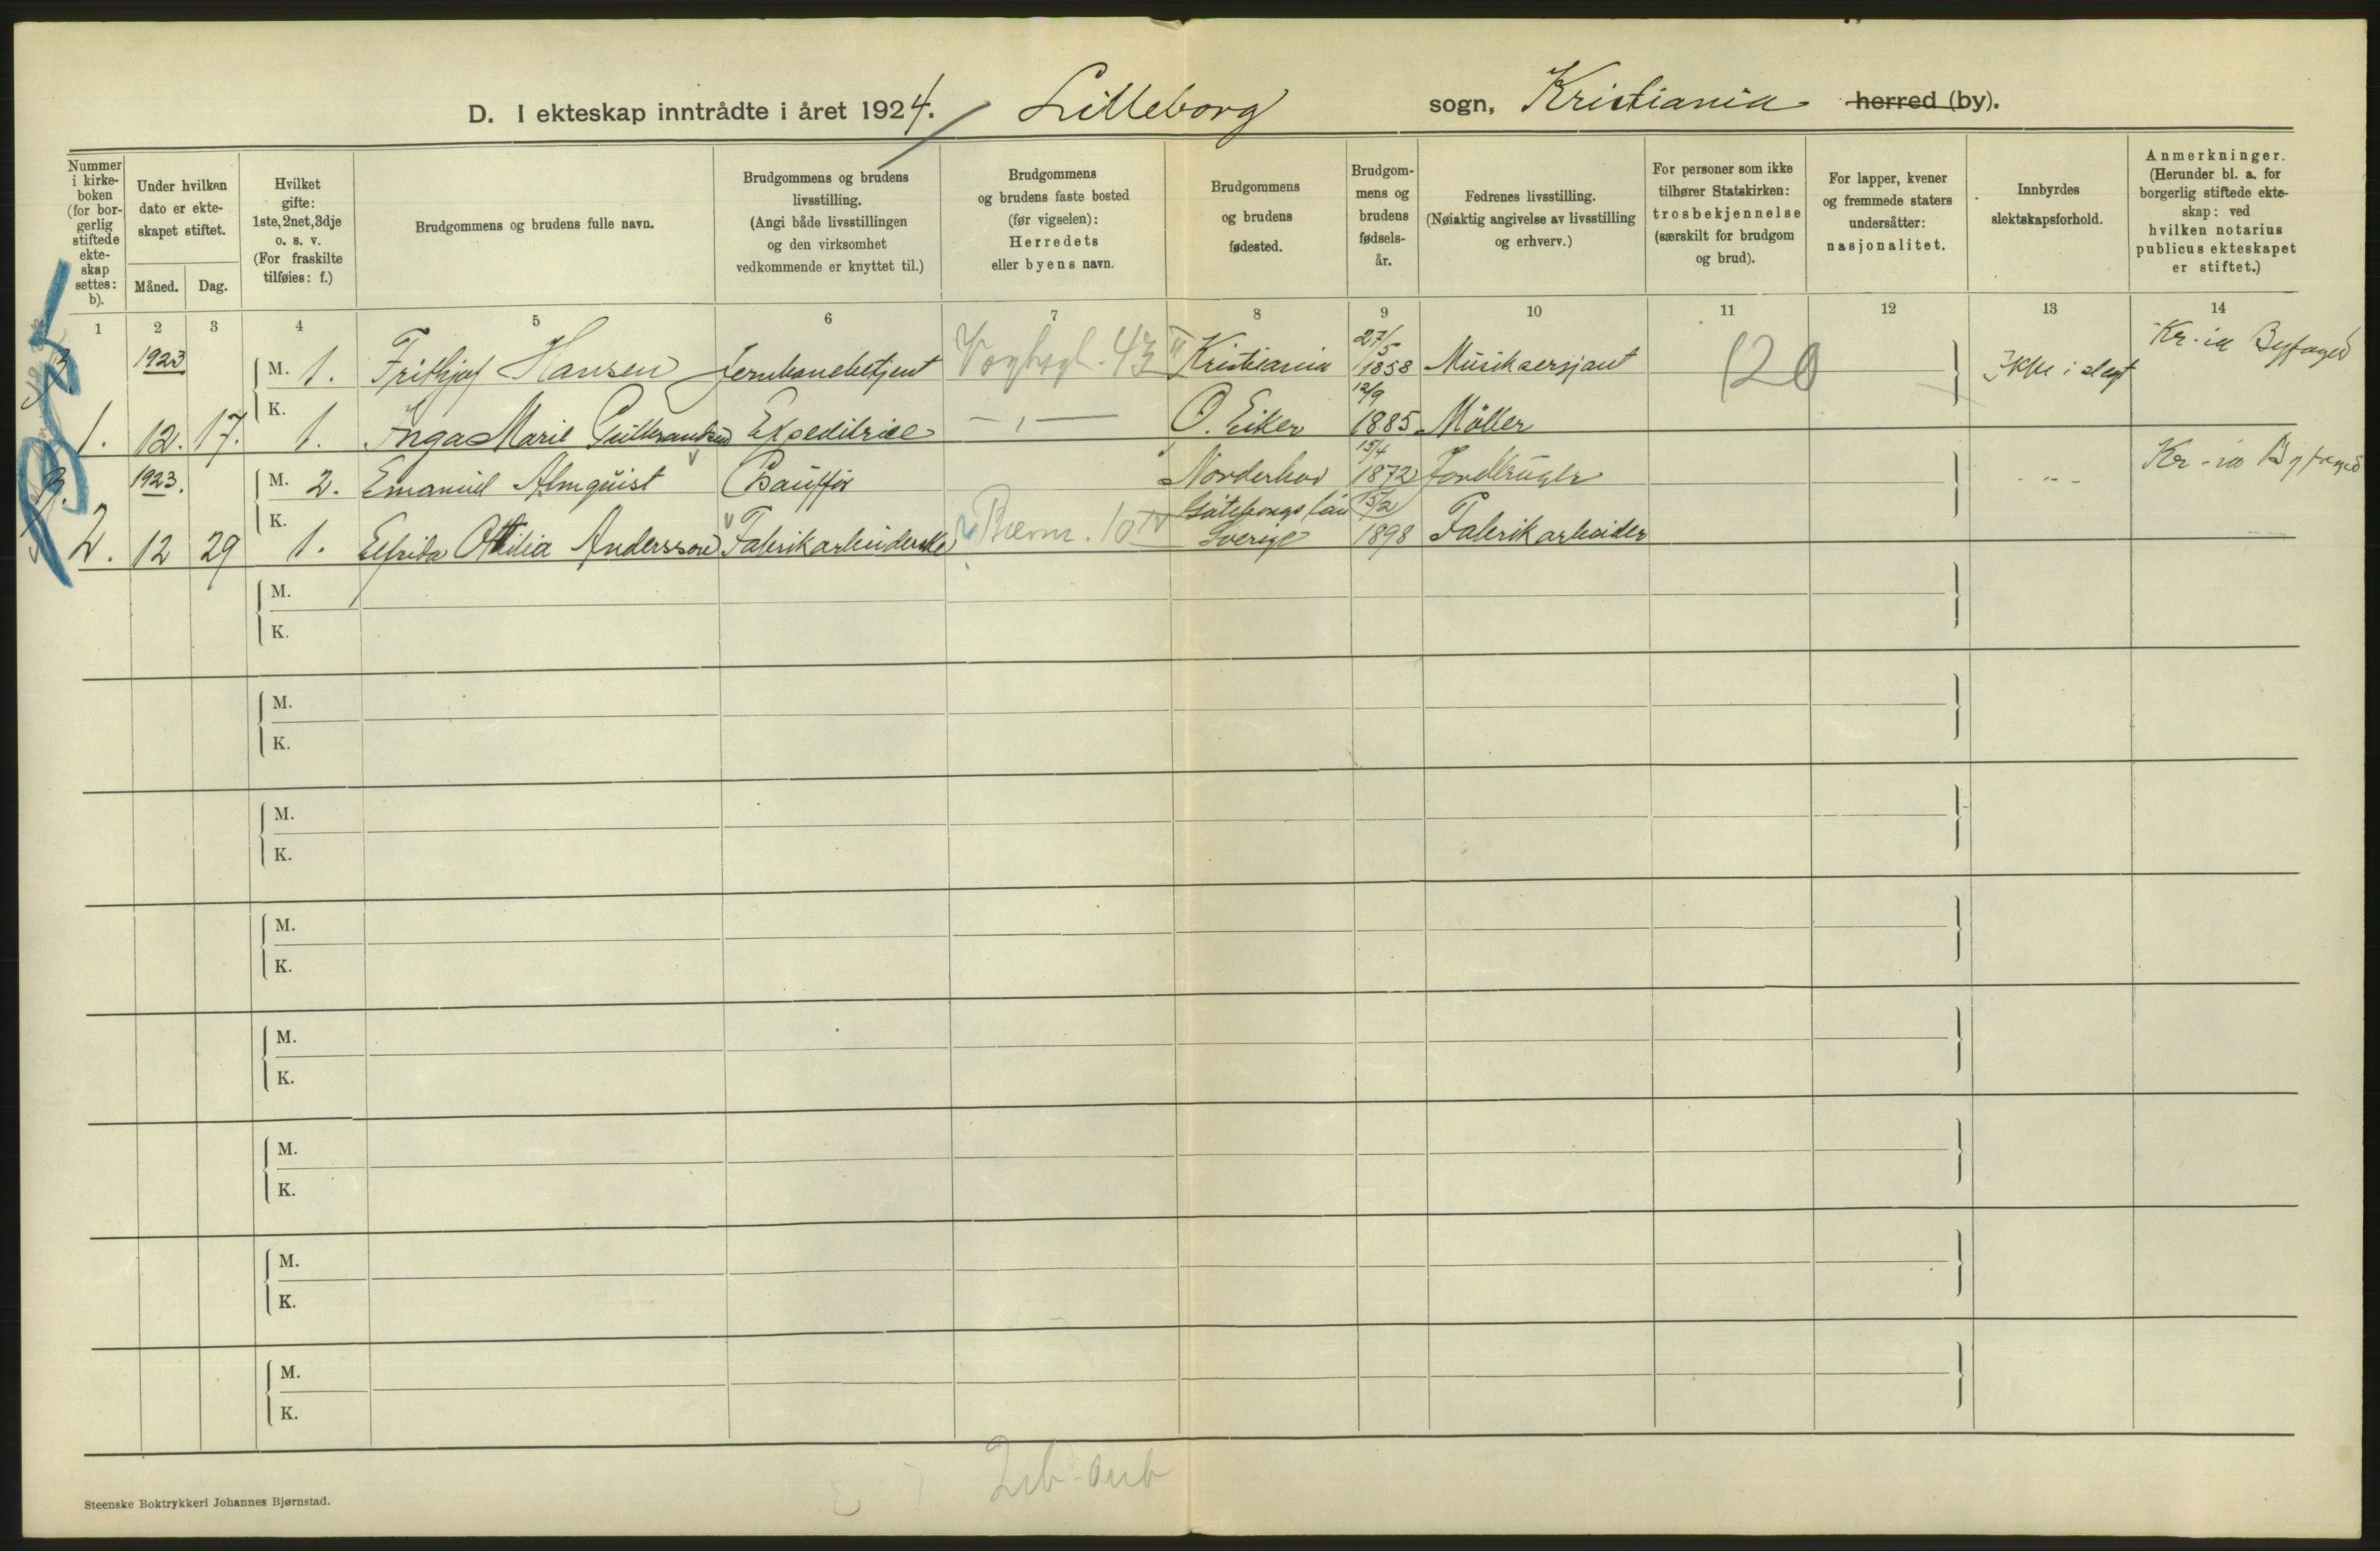 D. I ekteskap inntrådte i året 1924. Lilleborg sogn, Kristiania herred (by).
Nummer i kirkeboken (for borgerlig stiftede ekteskap settes: b).
Under hvilken dato er ekteskapet stiftet.
Måned. Dag.
Hvilket gifte: 1ste, 2net, 3dje o. s. v. (For fraskilte tilføies: f.)
Brudgommens og brudens fulle navn.
Brudgommens og brudens livsstilling. (Angi både livsstillingen og den virksomhet vedkommende er knyttet til.)
Brudgommens og brudens faste bosted (før vigselen): Herredets eller byens navn.
Brudgommens og brudens fødested.
Brudgommens og brudens fødselsår.
Fedrenes livsstilling. (Nøiaktig angivelse av livsstilling og erhverv.)
For personer som ikke tilhører Statskirken: trosbekjennelse (særskilt for brudgom og brud).
For lapper, kvener og fremmede staters undersåtter: nasjonalitet.
Innbyrdes slektskapsforhold.
Anmerkninger. (Herunder bl. a. for borgerlig stiftede ekteskap: ved hvilken notarius publicus ekteskapet er stiftet.)
1 2 3 4 5 6 7 8 9 10 11 12 13 14
1923 M. 1. Frithjof Hansen Jernbanebetjent 43 II Kristiania 27/5 1858 Musikersjant Ikke i slegt Kr-ia Byfoged
1. 12. 17. K. 1. Inga Marie Gulbrandsen Expeditrice - " - Ø. Eiker 12/9 1885 Möller
B. 1923. M. 2. Emanuel Almquist Chauffør Norderhov 15/4 1872 Jordbruger - " - Kr-ia Byfoged
2. 12 29 K. 1. Elfrida Ottilia Andersson Fabrikarbeiderske 10 IV Göteborgs län Sverige 15/2 1898 Fabrikarbeider
M.
K.
M.
K.
M.
K.
M.
K.
M.
K.
M.
K.
M.
K.
M.
K.
Steenske Boktrykkeri Johannes Bjørnstad.